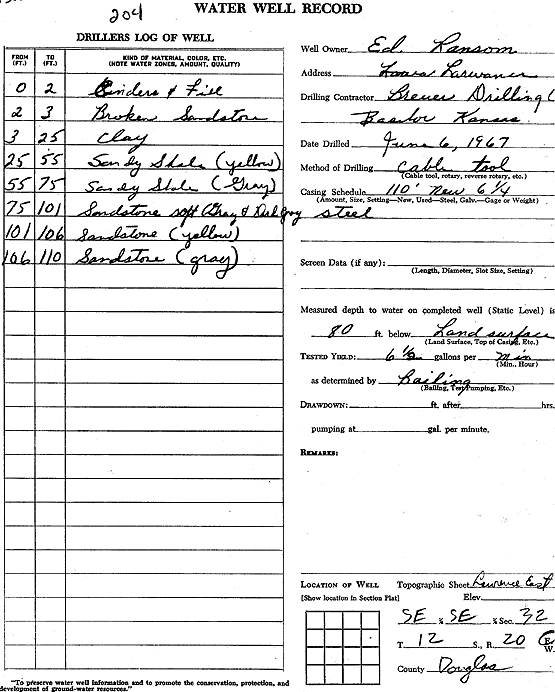 204
WATER WELL RECORD
DRILLERS LOG OF WELL
FROM (FT.) TO (FT.) KIND OF MATERIAL, COLOR, ETC. (NOTE WATER ZONES, AMOUNT, QUALITY)
0 2 Cinders & Fill
2 3 Broken Sandstone
3 25 Clay
25 55 Sandy Shale (yellow)
55 75 Sandy Shale (Gray)
75 101 Sandstone soft Gray & Drk gray
101 106 Sandstone (yellow)
106 110 Sandstone (gray)
"To preserve water well information and to promote the conservation, protection, and
development of ground-water resources."
Well Owner Ed Ransom
Address
Drilling Contractor Breuer Drilling
Kansas
Date Drilled June 6, 1967
Method of Drilling cable tool
(Cable tool, rotary, reverse rotary, etc.)
Casing Schedule 110' New 6 1/4
(Amount, Size, Setting—New, Used—Steel, Galv.—Gage or Weight)
steel
Screen Data (if any):
(Length, Diameter, Slot Size, Setting)
Measured depth to water on completed well (Static Level) is
80 ft. below Land surface
(Land Surface, Top of Casing, Etc.)
TESTED YIELD: 6 1/2 gallons per Min
(Min., Hour)
as determined by Bailing
(Bailing, Test Pumping, Etc.)
DRAWDOWN: ft. after hrs.
pumping at gal. per minute.
REMARKS:
LOCATION OF WELL Topographic Sheet Lawrence East
[Show location in Section Plat] Elev.
SE ¼ SE ¼ Sec. 32
T. 12 S., R. 20 E. W.
County Douglas